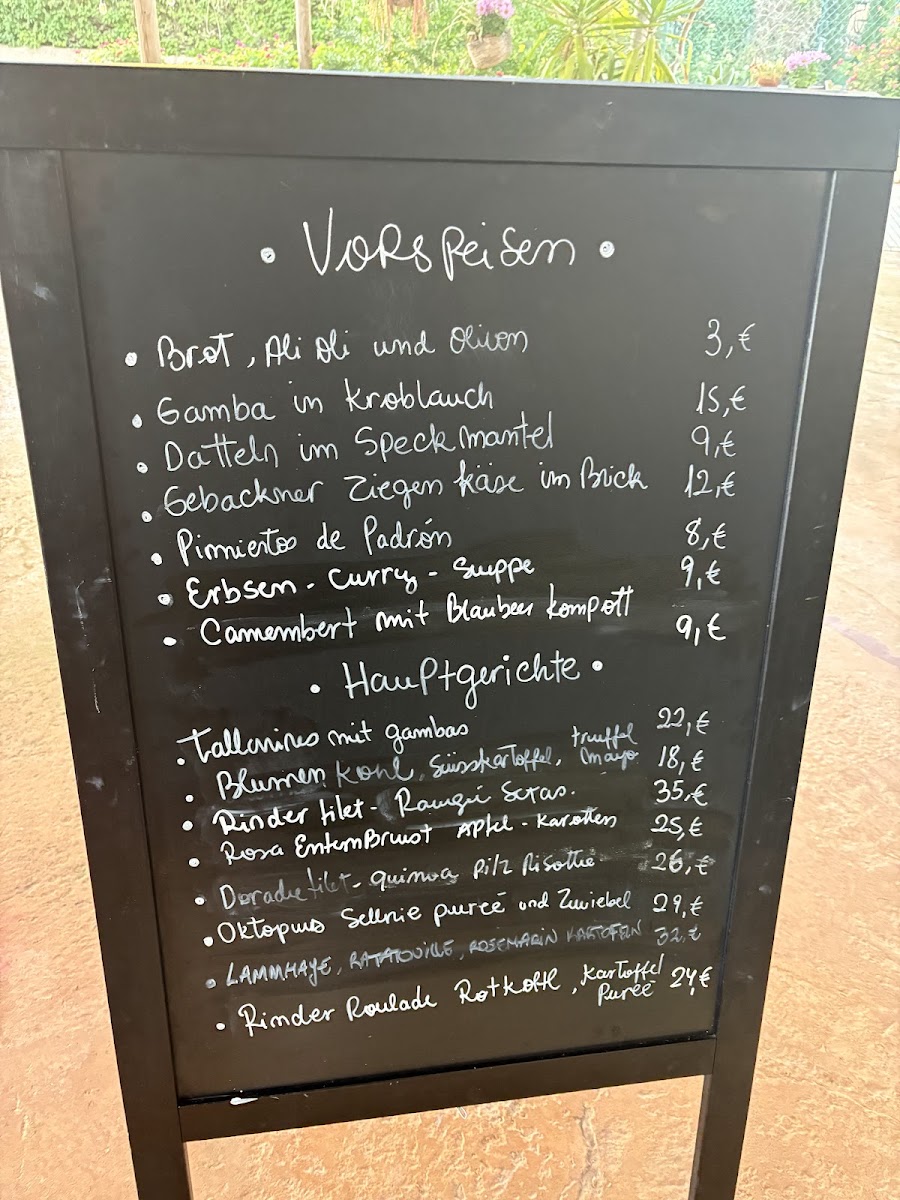 • Vorspeisen •
• Brot, Ali Oli und Oliven 3,€
• Gamba in Knoblauch 15,€
• Datteln im Speckmantel 9,€
• Gebackner Ziegen käse im Brick 12,€
• Pimientos de Padrón 8,€
• Erbsen - Curry - Suppe 9,€
• Camembert mit Blaubeer kompott 9,€
• Hauptgerichte •
• Tallarines mit gambas 22,€
• Blumen kohl, Süsskartoffel, truffel mayo 18,€
• Rinder filet - Setas. 35,€
• Rosa EntenBrust Apfel - Karotten 25,€
• Doradefilet - quinoa Pilz Risotto 26,€
• Oktopus Sellrie pureé und Zwiebel 29,€
• LAMMHAXE, RATATOUILLE, ROSEMARIN KARTOFELN 32,€
• Rinder Roulade Rotkohl, Kartoffel Pureé 24,€